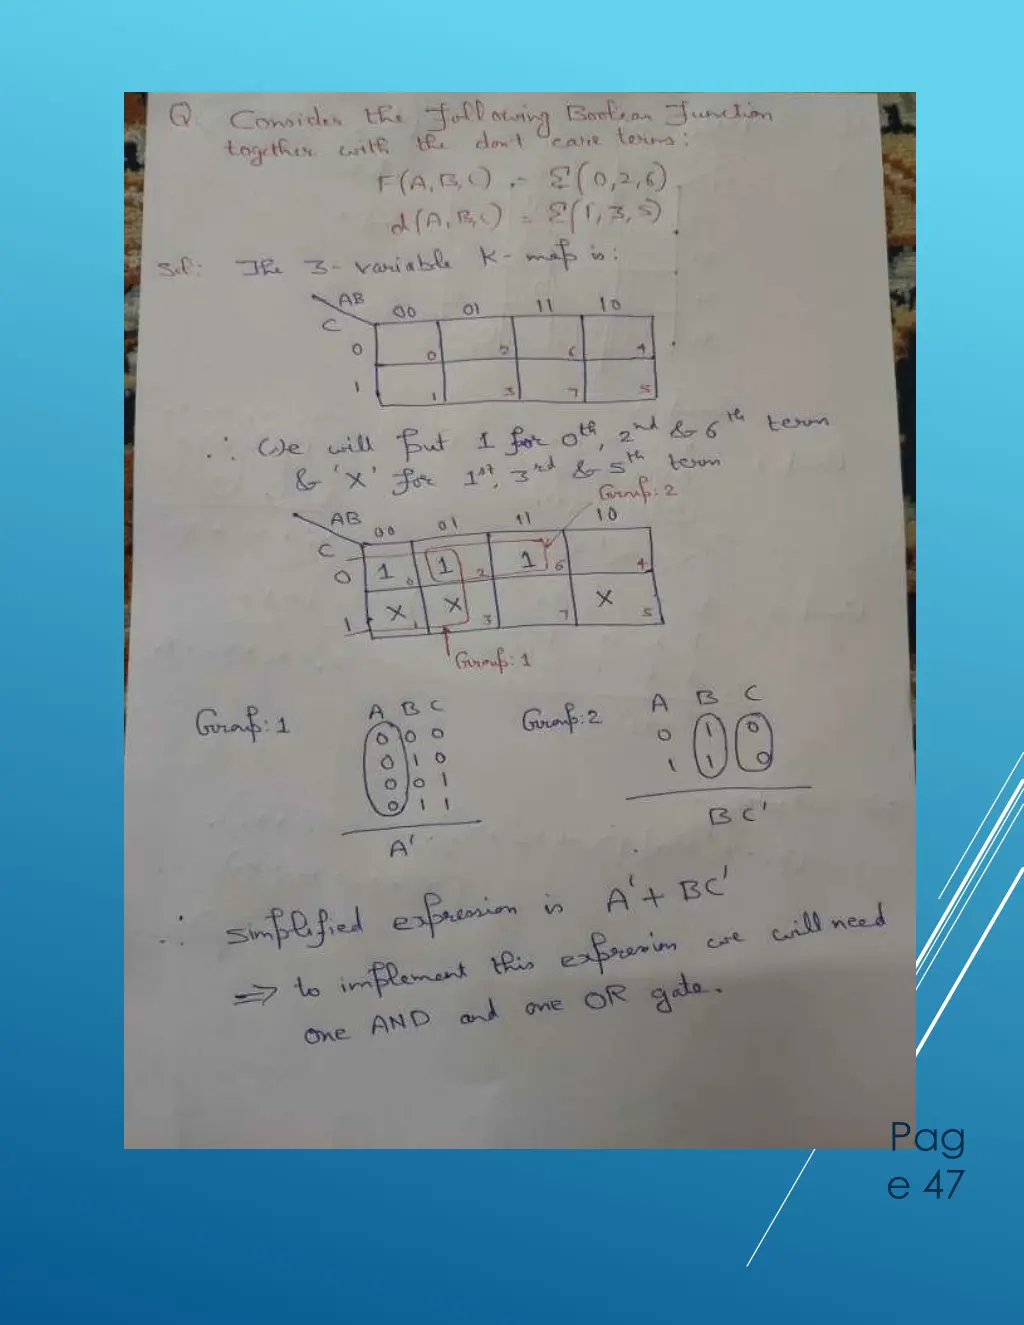 Q. Consider the following Boolean function
together with the don't care terms:
F(A,B,C) = Σ(0,2,6)
d(A,B,C) = Σ(1,3,5)
Sol: The 3-variable K-map is:
AB 00 01 11 10
C
0 0 2 6 4
1 1 3 7 5
∴ We will put 1 for 0th, 2nd & 6th term
& 'X' for 1st, 3rd & 5th term
Group: 2
AB 00 01 11 10
C
0 1 0 1 2 1 6 4
1 X 1 X 3 7 X 5
Group: 1
Group: 1 A B C
0 0 0
0 1 0
0 0 1
0 1 1
A'
Group: 2 A B C
0 1 0
1 1 0
BC'
∴ simplified expression is A' + BC'
⇒ to implement this expression we will need
one AND and one OR gate.
Pag
e 47